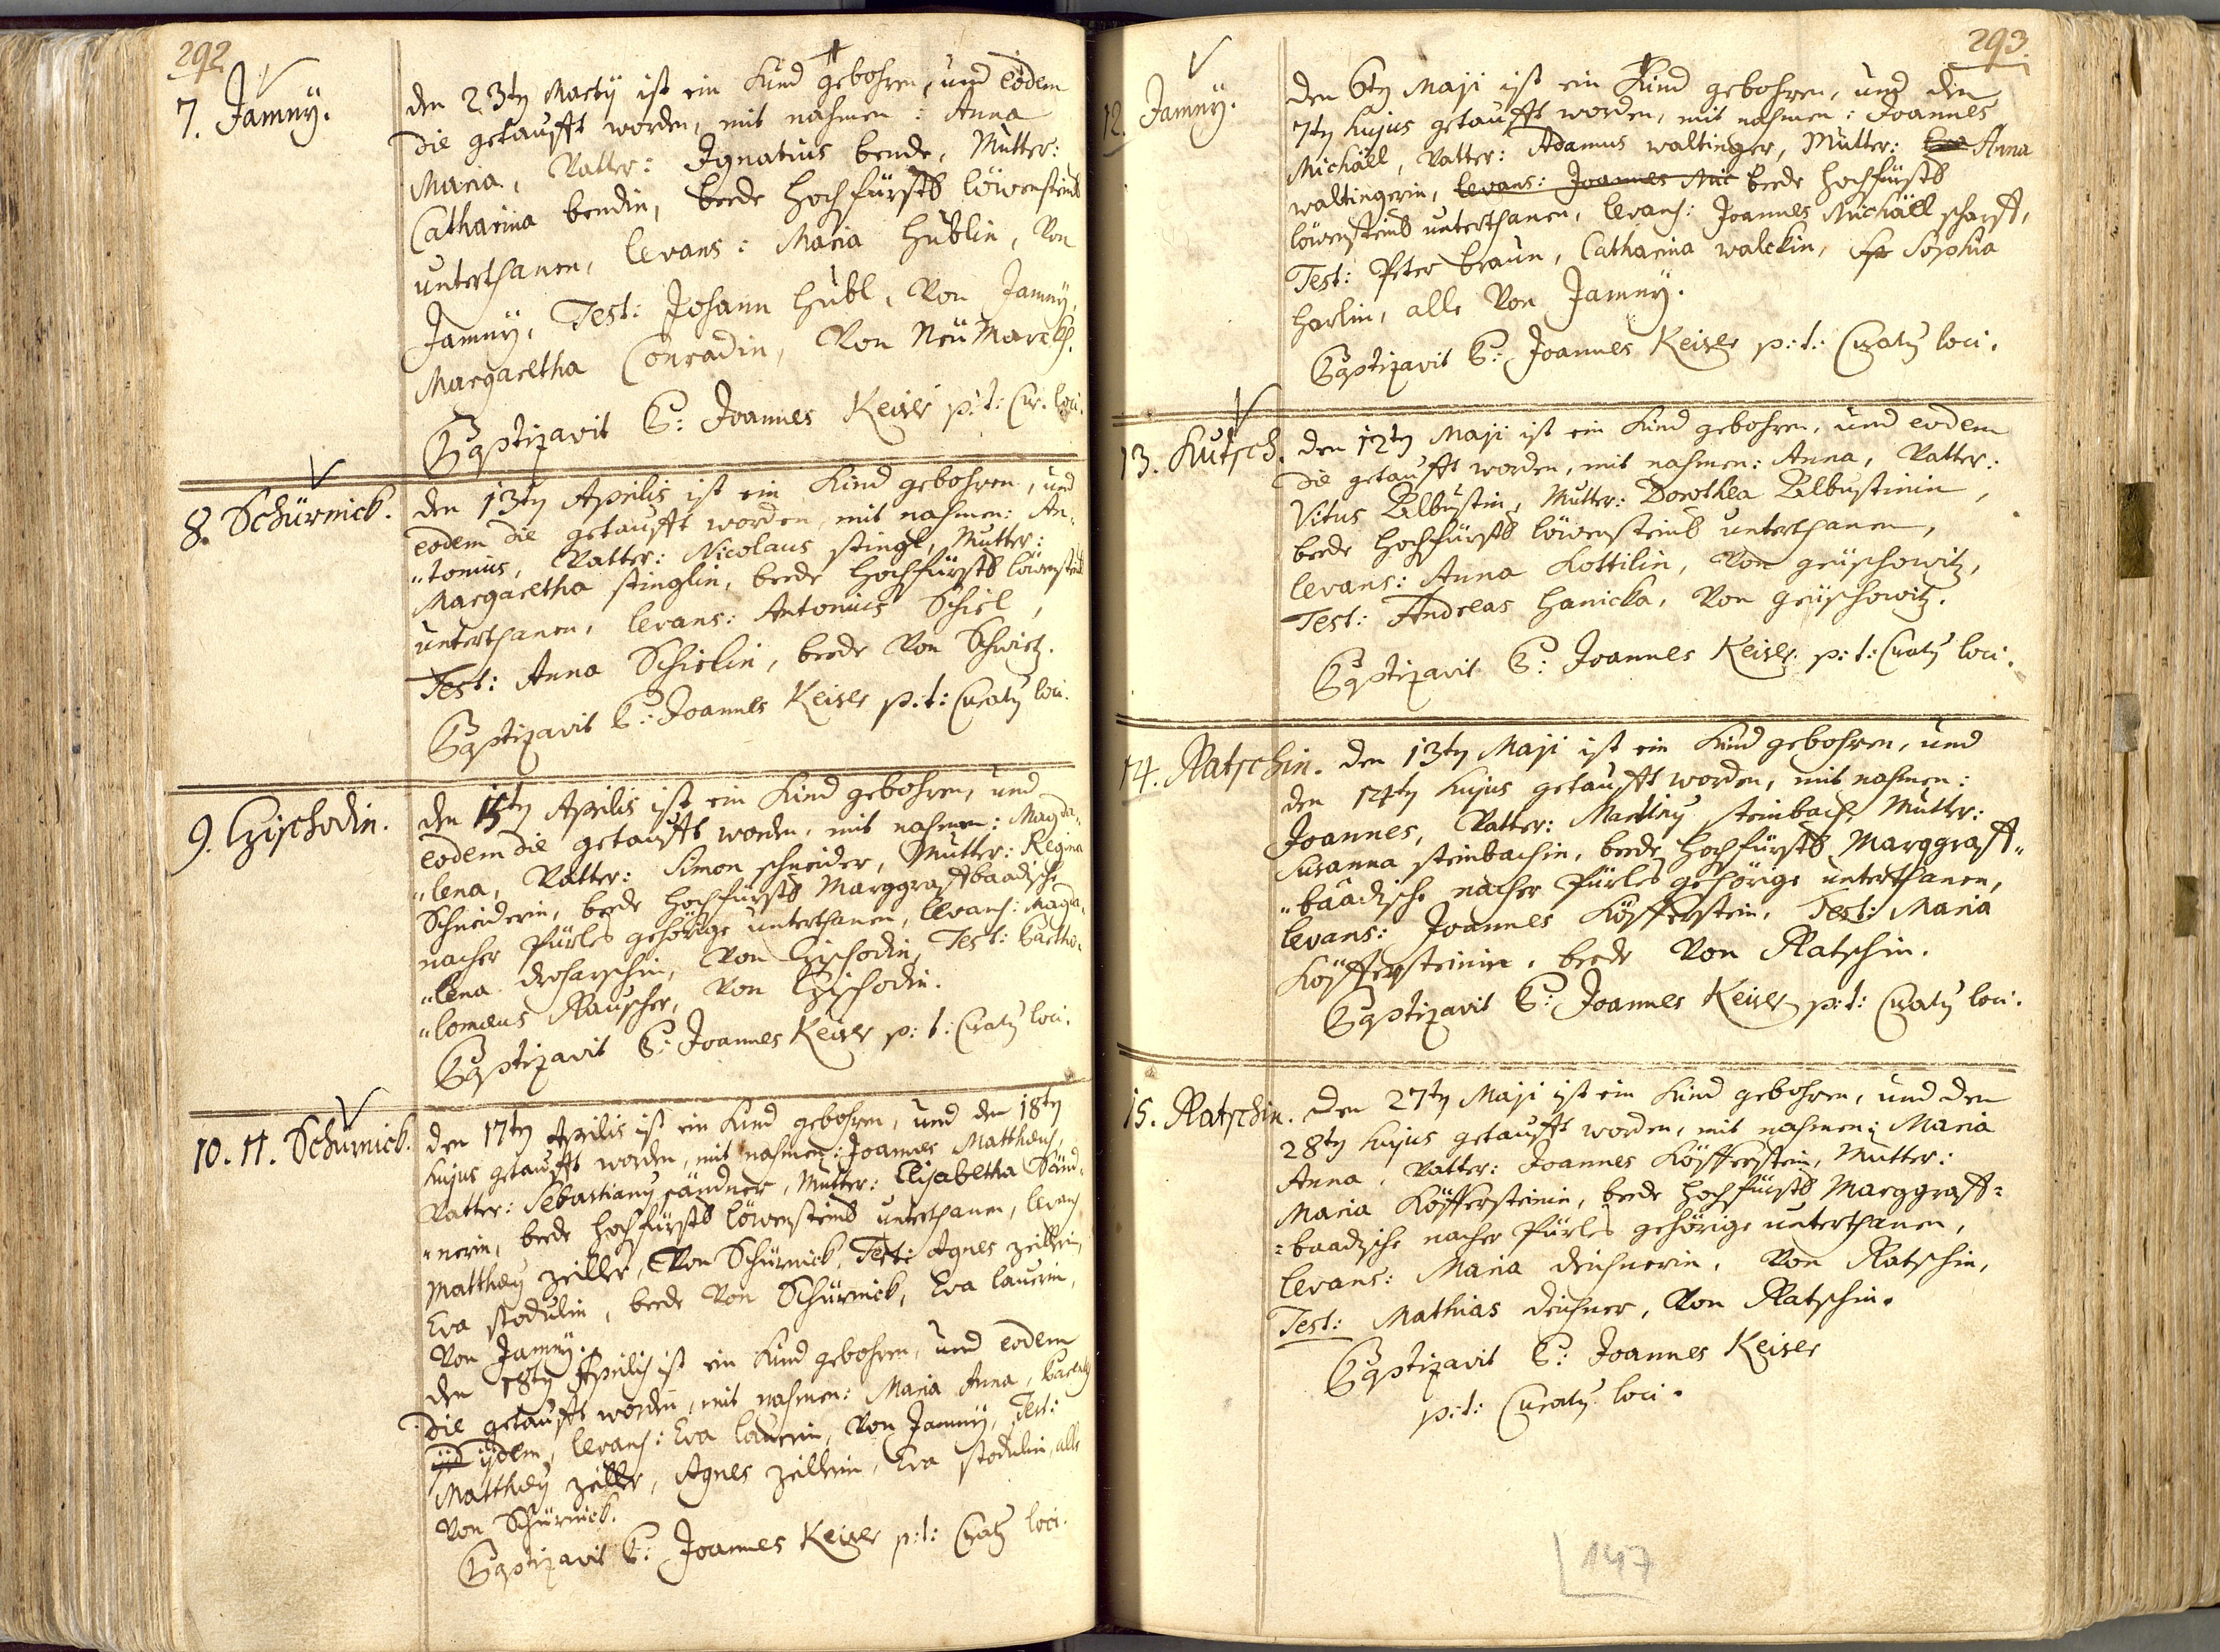 292
7. Jamnÿ.
den 23ty Martÿ ist ein Kind gebohren, und eodem
die getaufft worden, mit nahmen: Anna
Maria, Vatter: Ignatius bende, Mutter:
Catharina bendin, beede Hochfürstl löwensteins
unterthanen, levans: Maria Hüblin, Von
Jamnÿ, Test: Johann Hübl, Von Jamnÿ,
Margaretha Conradin, Von Neü Marckh.
Baptizavit P: Joannes Keiser p:t: Cur. loci.
8. Schürnick.
den 13ty Aprilis ist ein Kind gebohren, und
eodem die getaufft worden, mit nahmen: An„
„tonius, Vatter: Nicolaus stingl, Mutter:
Margaretha stinglin, beede Hochfürstl löwenstein
unterthanen, levans: Antonius Schiel,
Test: Anna Schielin, beede Von Schwietz.
Baptizavit P: Joannes Keiser p:t: Curatq loci.
9. Czischodin.
den 15ty Aprilis ist ein Kind gebohren, und
eodem die getaufft worden, mit nahmen: Magda„
„lena, Vatter: Simon schneider, Mutter: Regina
Schneiderin, beede Hochfürstl Marggraffbaadische
nacher Pürles gehörige unterthanen, levans: Magda„
„lena droharschin, Von Czischodin, Test: Bartho„
„lomæus Rauscher, Von Czischodin.
Baptizavit P: Joannes Keiser p:t: Curatq loci.
10. 11. Schürnick.
den 17ty Aprilis ist ein Kind gebohren, und den 18ty
hujus getaufft worden, mit nahmen: Joannes Matthæus,
Vatter: Sebastianq sändner, Mutter: Elisabetha Sänd„
„nerin, beede Hochfürstl löwensteins unterthanen, levans
Matthæq zeiller, Von Schürnick, Test: Agnes zeillerin,
Eva stodulin, beede Von Schürnick, Eva lauerin,
Von Jamnÿ.
den 18ty Aprilis ist ein Kind gebohren, und eodem
die getaufft worden, mit nahmen: Maria Anna,
iid iÿdem, levans: Eva lauerin, Von Jamnÿ, Test:
Matthæq zeiller, Agnes zeillerin, Eva stodulin, alle
Von Schürnick.
Baptizavit P: Joannes Keiser p:t: Curatq loci.
293.
12. Jamnÿ.
den 6ty Maji ist ein Kind gebohren, und den
7ty hujus getaufft worden, mit nahmen: Joannes
Michäel, Vatter: Adamus waltinger, Mutter: Eva Anna
waltingerin, levans: Joannes Mic beede Hochfürstl
löwensteins unterthanen, levans: Joannes Michäel scharff,
Test: Peter braun, Catharina walckin, Sophia
Harlin, alle Von Jamnÿ.
Baptizavit P: Joannes Keiser p:t: Curatq loci.
13. Kutsch.
den 12ty Maji ist ein Kind gebohren, und eodem
die getaufft worden, mit nahmen: Anna, Vatter:
Vitus Albustin, Mutter: Dorothea Albustinin,
beede Hochfürstl löwensteins unterthanen,
levans: Anna Kottilin, Von grüschowitz,
Test: Andreas Hanicka, Von grüschowitz.
Baptizavit P: Joannes Keiser p:t: Curatq loci.
14. Ratschin.
den 13ty Maji ist ein Kind gebohren, und
den 14ty hujus getaufft worden, mit nahmen:
Joannes, Vatter: Martinq steinbach, Mutter:
Susanna steinbachin, beede Hochfürstl Marggraff„
„baadische nacher Pürles gehörige unterthanen,
levans: Joannes Köfferstein, Test: Maria
Köffersteinin, beede Von Ratschin.
Baptizavit P: Joannes Keiser p:t: Curatq loci.
15. Ratschin.
den 27ty Maji ist ein Kind gebohren, und den
28ty hujus getaufft worden, mit nahmen: Maria
Anna, Vatter: Joannes Köfferstein, Mutter:
Maria Köffersteinin, beede Hochfürstl Marggraff=
=baadische nacher Pürles gehörige unterthanen,
levans: Maria deichnerin, Von Ratschin,
Test: Mathias deichner, Von Ratschin.
Baptizavit P: Joannes Keiser
p:t: Curatq loci.
147